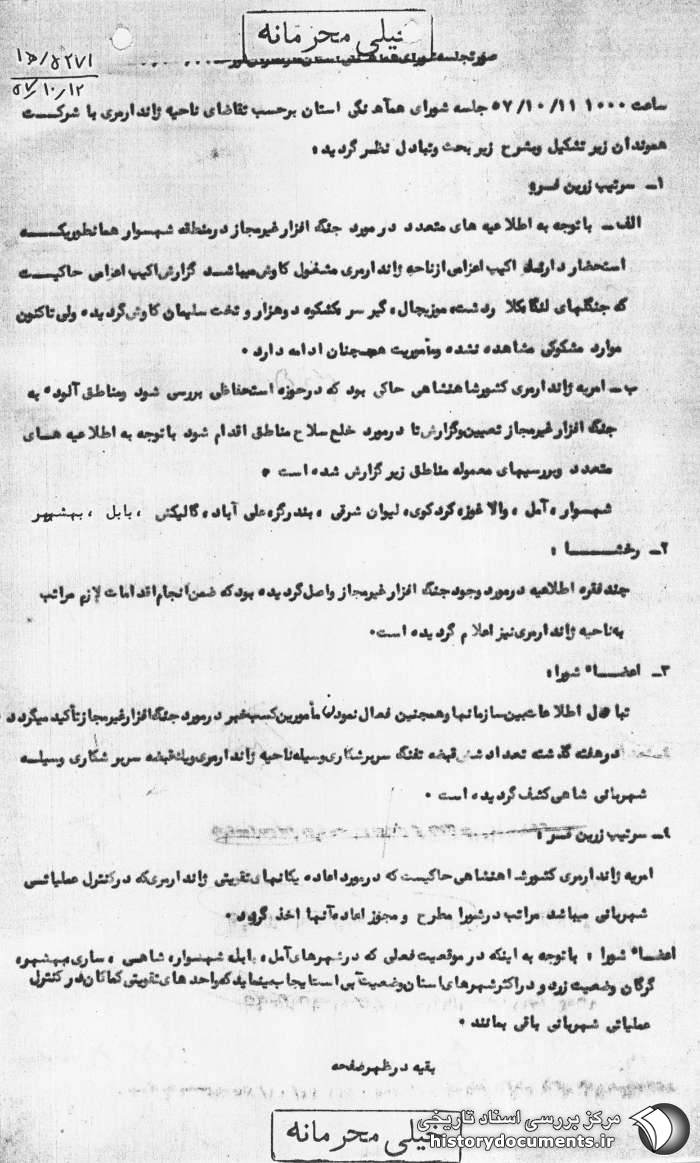 خیلی محرمانه
صورتجلسه شورای هماهنگی استان
۱۵/۵۲۷۱
۵۷/۱۰/۱۲
ساعت ۱۰۰۰ ۵۷/۱۰/۱۱ جلسه شورای همآهنگی استان برحسب تقاضای ناحیه ژاندارمری با شرکت
هموندان زیر تشکیل وبشرح زیر بحث وتبادل نظر گردید:
۱ـ سرتیپ زرین فر:
الف ـ باتوجه به اطلاعیه های متعدد در مورد جنگ افزار غیرمجاز درمنطقه شهسوار همانطوریکه
استحضار دارند اکیپ اعزامی از ناحیه ژاندارمری مشغول کاوش میباشد گزارش اکیپ اعزامی حاکیست
که جنگلهای لنگا بکلا ردشت، موزیجال، گیر سر یکشکوه دوهزار و تخت سلیمان کاوش گردیده ولی تاکنون
موارد مشکوکی مشاهده نشده ومأموریت همچنان ادامه دارد.
ب ـ امریه ژاندارمری کشورشاهنشاهی حاکی بود که درحوزه استحفاظی بررسی شود ومناطق آلوده به
جنگ افزار غیرمجاز تعیین وگزارش تا درمورد خلع سلاح مناطق اقدام شود باتوجه به اطلاعیه های
متعدد وبررسیهای معموله مناطق زیر گزارش شده است.
شهسوار، آمل، والا غوزه کردکوی، لیوان شرقی، بندرگز، علی آباد، گالیکش، بابل، بهشهر
۲ـ رخشا:
چند فقره اطلاعیه درمورد وجود جنگ افزار غیرمجاز واصل گردیده بود که ضمن انجام اقدامات لازم مراتب
به ناحیه ژاندارمری نیز اعلام گردیده است.
۳ـ اعضاء شورا:
تبادل اطلاعات بین سازمانها وهمچنین فعال نمودن مأمورین کسب خبر درمورد جنگ افزار غیرمجاز تأکید میگردد.
درهفته گذشته تعداد شش قبضه تفنگ سرپر شکاری وسیله ناحیه ژاندارمری ویک قبضه سرپر شکاری وسیله
شهربانی شاهی کشف گردیده است.
سرتیپ زرین فر:
امریه ژاندارمری کشورشاهنشاهی حاکیست که درمورد اعاده یکانهای تقویتی ژاندارمری که درکنترل عملیاتی
شهربانی میباشد مراتب درشورا مطرح و مجوز اعاده آنها اخذ گردد.
اعضاء شورا: باتوجه به اینکه در موقعیت فعلی که درشهرهای آمل، بابل، شهسوار، شاهی، ساری، بهشهر،
گرگان وضعیت زرد و دراکثر شهرهای استان وضعیت آبی است ایجاب مینماید که واحدهای تقویتی کماکان در کنترل
عملیاتی شهربانی باقی بمانند.
بقیه درظهر صفحه
خیلی محرمانه
مرکز بررسی اسناد تاریخی
historydocuments.ir